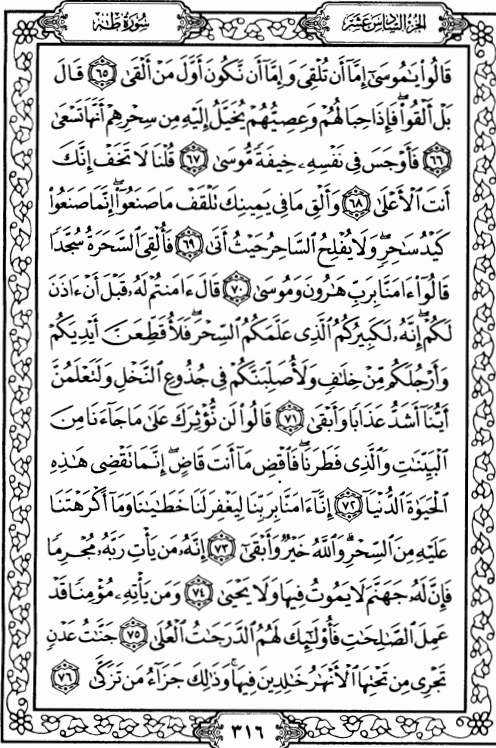 الجزء السادس عشر سورة طه
قَالُوا۟ يَـٰمُوسَىٰٓ إِمَّآ أَن تُلْقِىَ وَإِمَّآ أَن نَّكُونَ أَوَّلَ مَنْ أَلْقَىٰ ٦٥ قَالَ
بَلْ أَلْقُوا۟ۖ فَإِذَا حِبَالُهُمْ وَعِصِيُّهُمْ يُخَيَّلُ إِلَيْهِ مِن سِحْرِهِمْ أَنَّهَا تَسْعَىٰ
٦٦ فَأَوْجَسَ فِى نَفْسِهِۦ خِيفَةً مُّوسَىٰ ٦٧ قُلْنَا لَا تَخَفْ إِنَّكَ
أَنتَ ٱلْأَعْلَىٰ ٦٨ وَأَلْقِ مَا فِى يَمِينِكَ تَلْقَفْ مَا صَنَعُوٓا۟ۖ إِنَّمَا صَنَعُوا۟
كَيْدُ سَـٰحِرٍۖ وَلَا يُفْلِحُ ٱلسَّاحِرُ حَيْثُ أَتَىٰ ٦٩ فَأُلْقِىَ ٱلسَّحَرَةُ سُجَّدًا
قَالُوٓا۟ ءَامَنَّا بِرَبِّ هَـٰرُونَ وَمُوسَىٰ ٧٠ قَالَ ءَامَنتُمْ لَهُۥ قَبْلَ أَنْ ءَاذَنَ
لَكُمْۖ إِنَّهُۥ لَكَبِيرُكُمُ ٱلَّذِى عَلَّمَكُمُ ٱلسِّحْرَۖ فَلَأُقَطِّعَنَّ أَيْدِيَكُمْ
وَأَرْجُلَكُم مِّنْ خِلَـٰفٍ وَلَأُصَلِّبَنَّكُمْ فِى جُذُوعِ ٱلنَّخْلِ وَلَتَعْلَمُنَّ
أَيُّنَآ أَشَدُّ عَذَابًا وَأَبْقَىٰ ٧١ قَالُوا۟ لَن نُّؤْثِرَكَ عَلَىٰ مَا جَآءَنَا مِنَ
ٱلْبَيِّنَـٰتِ وَٱلَّذِى فَطَرَنَاۖ فَٱقْضِ مَآ أَنتَ قَاضٍۖ إِنَّمَا تَقْضِى هَـٰذِهِ
ٱلْحَيَوٰةَ ٱلدُّنْيَآ ٧٢ إِنَّآ ءَامَنَّا بِرَبِّنَا لِيَغْفِرَ لَنَا خَطَـٰيَـٰنَا وَمَآ أَكْرَهْتَنَا
عَلَيْهِ مِنَ ٱلسِّحْرِۗ وَٱللَّهُ خَيْرٌ وَأَبْقَىٰٓ ٧٣ إِنَّهُۥ مَن يَأْتِ رَبَّهُۥ مُجْرِمًا
فَإِنَّ لَهُۥ جَهَنَّمَ لَا يَمُوتُ فِيهَا وَلَا يَحْيَىٰ ٧٤ وَمَن يَأْتِهِۦ مُؤْمِنًا قَدْ
عَمِلَ ٱلصَّـٰلِحَـٰتِ فَأُو۟لَـٰٓئِكَ لَهُمُ ٱلدَّرَجَـٰتُ ٱلْعُلَىٰ ٧٥ جَنَّـٰتُ عَدْنٍ
تَجْرِى مِن تَحْتِهَا ٱلْأَنْهَـٰرُ خَـٰلِدِينَ فِيهَاۚ وَذَٰلِكَ جَزَآءُ مَن تَزَكَّىٰ ٧٦
٣١٦